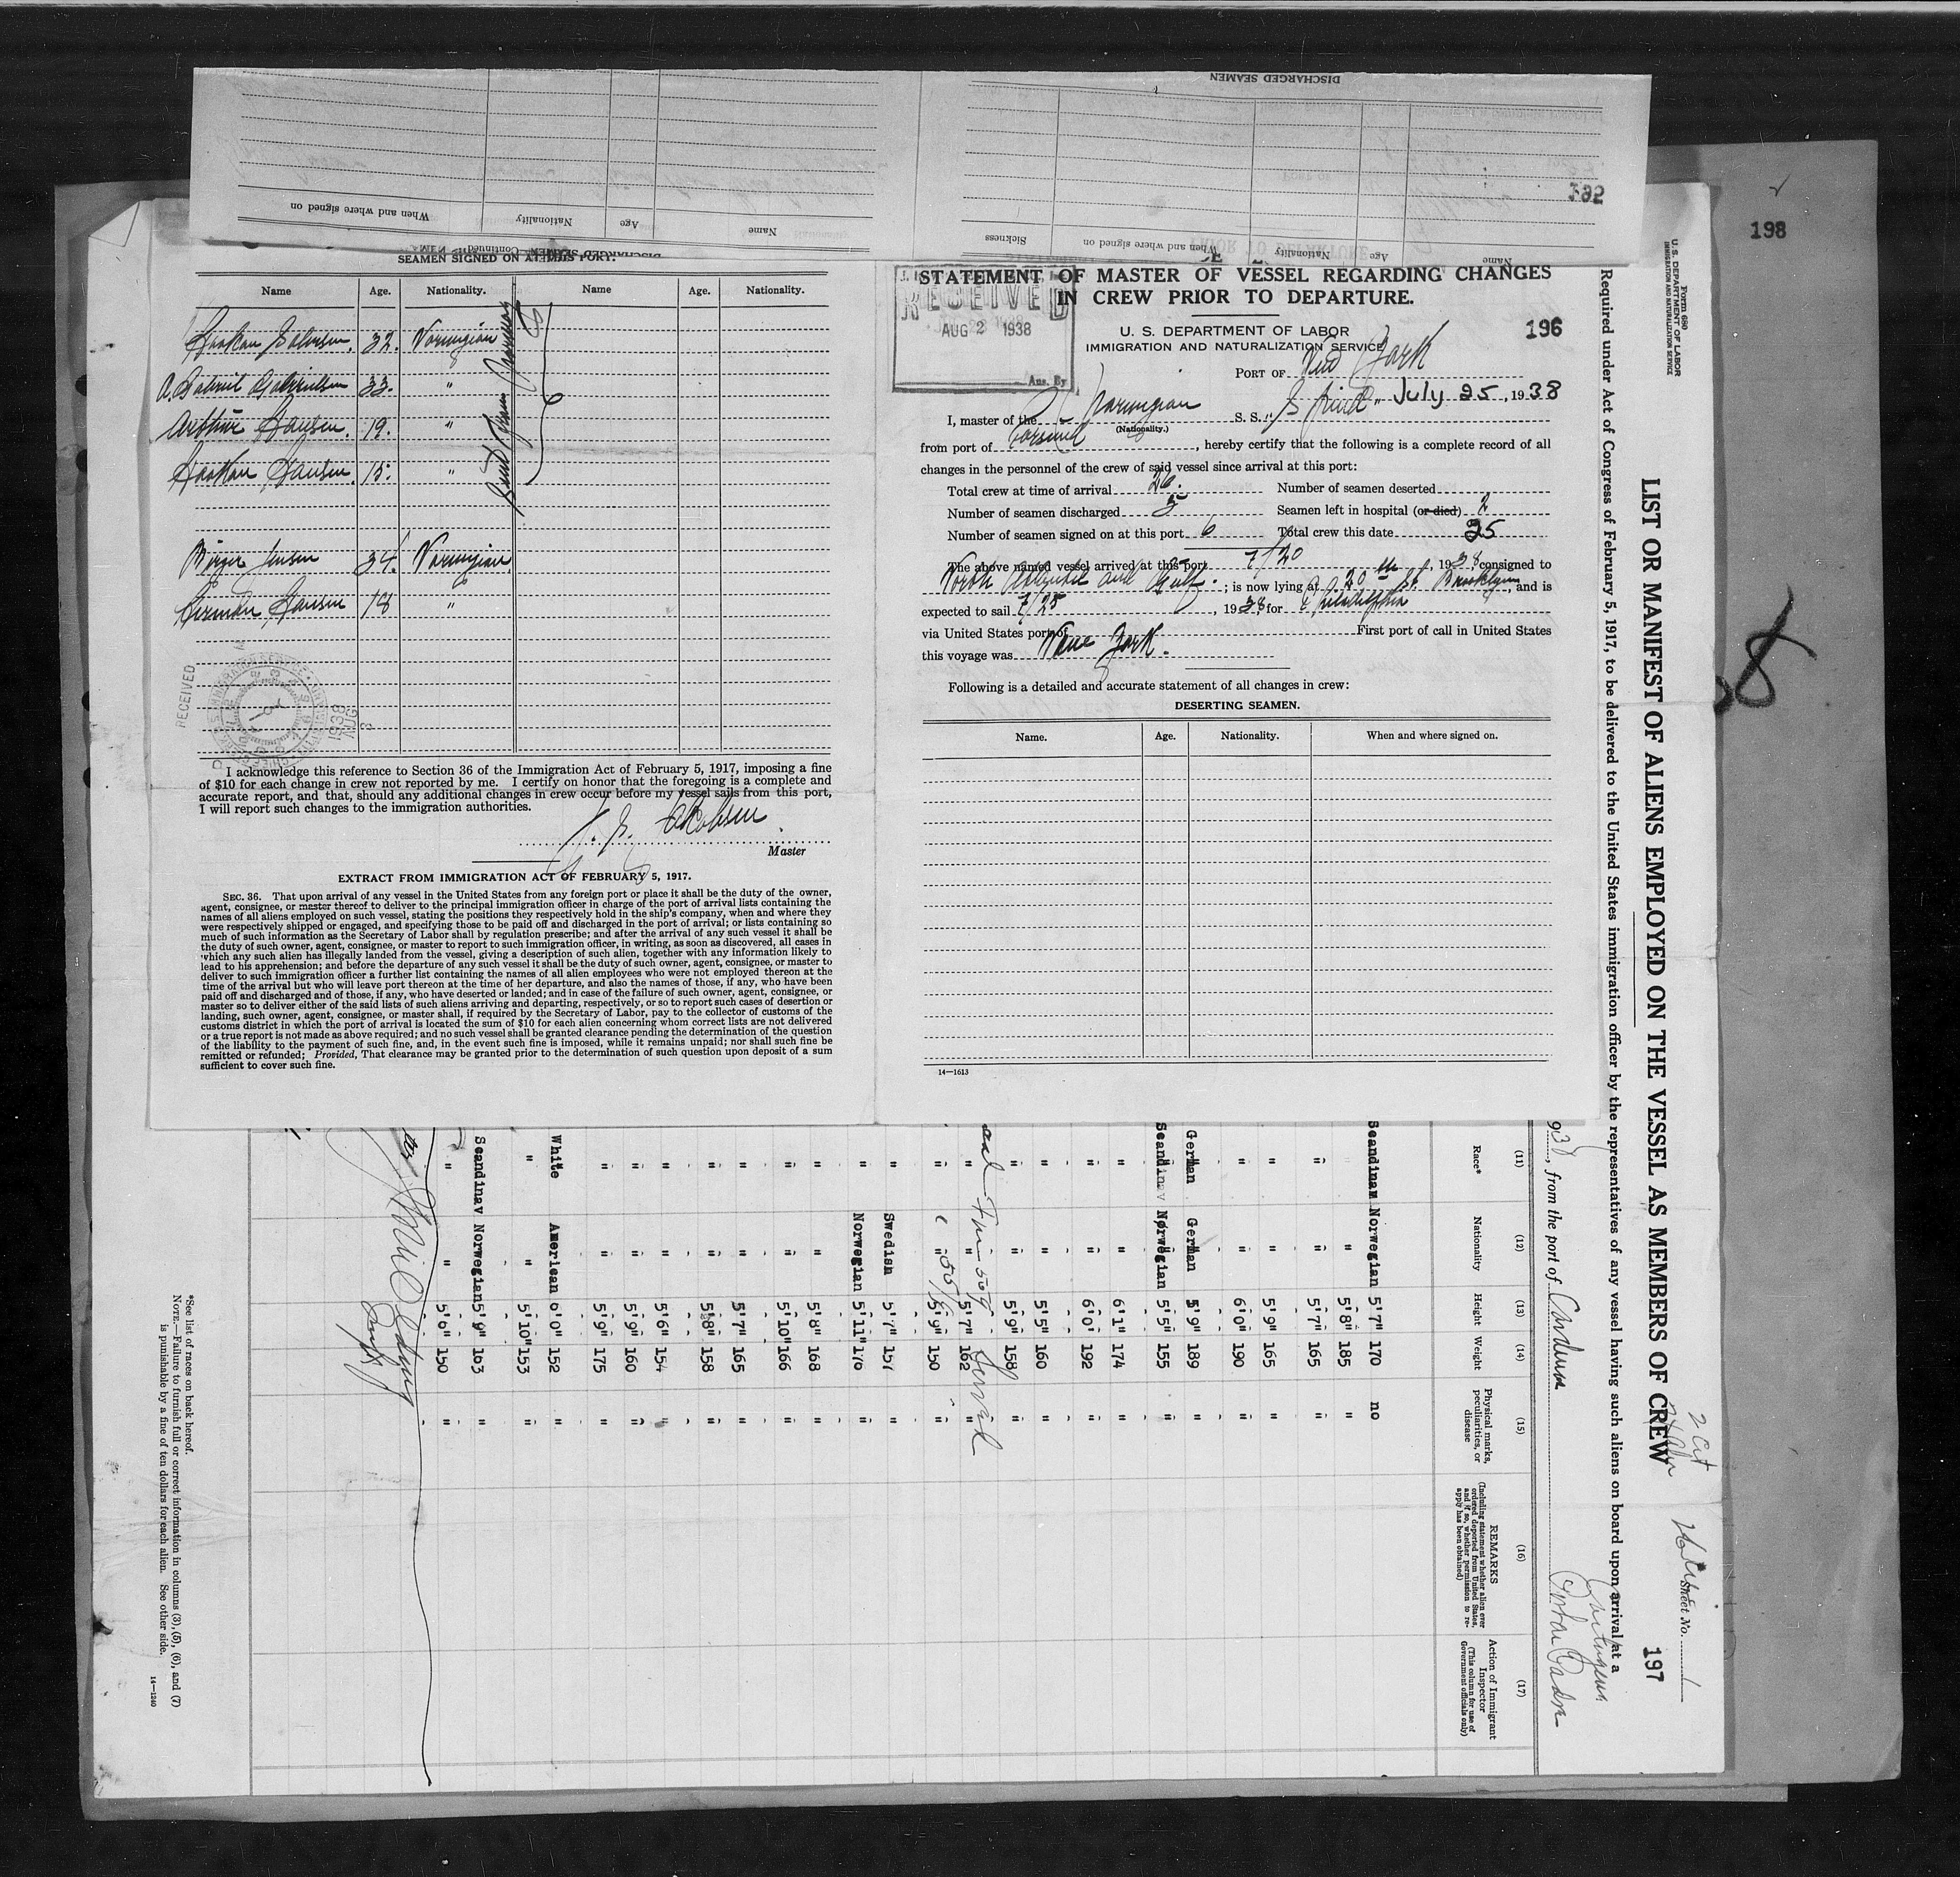 DISCHARGED SEAMEN
When and where signed on
Nationality
Age
Name
Sickness
When and where signed on
Nationality
Age
Name
392
SEAMEN SIGNED ON AT THIS PORT.
Name Age. Nationality. Name Age. Nationality.
Haakan 32. Norvigian
A. Gabriel Gabrielsen 33. "
Arthur Hansen. 19. "
Haakan Hansen. 15. "
Birger Jensen 34. Norvigian
Herman Hansen 18 "
RECEIVED
1938 AUG 3
I acknowledge this reference to Section 36 of the Immigration Act of February 5, 1917, imposing a fine
of $10 for each change in crew not reported by me. I certify on honor that the foregoing is a complete and
accurate report, and that, should any additional changes in crew occur before my vessel sails from this port,
I will report such changes to the immigration authorities.
Master
EXTRACT FROM IMMIGRATION ACT OF FEBRUARY 5, 1917.
SEC. 36. That upon arrival of any vessel in the United States from any foreign port or place it shall be the duty of the owner,
agent, consignee, or master thereof to deliver to the principal immigration officer in charge of the port of arrival lists containing the
names of all aliens employed on such vessel, stating the positions they respectively hold in the ship's company, when and where they
were respectively shipped or engaged, and specifying those to be paid off and discharged in the port of arrival; or lists containing so
much of such information as the Secretary of Labor shall by regulation prescribe; and after the arrival of any such vessel it shall be
the duty of such owner, agent, consignee, or master to report to such immigration officer, in writing, as soon as discovered, all cases in
which any such alien has illegally landed from the vessel, giving a description of such alien, together with any information likely to
lead to his apprehension; and before the departure of any such vessel it shall be the duty of such owner, agent, consignee, or master to
deliver to such immigration officer a further list containing the names of all alien employees who were not employed thereon at the
time of the arrival but who will leave port thereon at the time of her departure, and also the names of those, if any, who have been
paid off and discharged and of those, if any, who have deserted or landed; and in case of the failure of such owner, agent, consignee, or
master so to deliver either of the said lists of such aliens arriving and departing, respectively, or so to report such cases of desertion or
landing, such owner, agent, consignee, or master shall, if required by the Secretary of Labor, pay to the collector of customs of the
customs district in which the port of arrival is located the sum of $10 for each alien concerning whom correct lists are not delivered
or a true report is not made as above required; and no such vessel shall be granted clearance pending the determination of the question
of the liability to the payment of such fine, and, in the event such fine is imposed, while it remains unpaid; nor shall such fine be
remitted or refunded; Provided, That clearance may be granted prior to the determination of such question upon deposit of a sum
sufficient to cover such fine.
STATEMENT OF MASTER OF VESSEL REGARDING CHANGES
IN CREW PRIOR TO DEPARTURE.
RECEIVED
AUG 2 1938
Ans. By
U. S. DEPARTMENT OF LABOR
IMMIGRATION AND NATURALIZATION SERVICE
196
PORT OF New York
July 25, 1938
I, master of the Norwegian S. S.
(Nationality.)
from port of , hereby certify that the following is a complete record of all
changes in the personnel of the crew of said vessel since arrival at this port:
Total crew at time of arrival 26. Number of seamen deserted
Number of seamen discharged 5 Seamen left in hospital (or died) 2
Number of seamen signed on at this port 6 Total crew this date 25
The above named vessel arrived at this port 7/20, 1938, consigned to
North Atlantic and Gulf. ; is now lying at 20 th St. Brooklyn, and is
expected to sail 7/25, 1938, for Philadelphia
via United States port of First port of call in United States
this voyage was New York.
Following is a detailed and accurate statement of all changes in crew:
DESERTING SEAMEN.
Name. Age. Nationality. When and where signed on.
14—1613
198
Form 680
U. S. DEPARTMENT OF LABOR
IMMIGRATION AND NATURALIZATION SERVICE
LIST OR MANIFEST OF ALIENS EMPLOYED ON THE VESSEL AS MEMBERS OF CREW
Sheet No. 1
197
Required under Act of Congress of February 5, 1917, to be delivered to the United States immigration officer by the representatives of any vessel having such aliens on board upon arrival at a
938, from the port of Cardenas
(11) (12) (13) (14) (15) (16) (17)
Race* Nationality Height Weight Physical marks, peculiarities, or disease
REMARKS
(Including statement whether alien ever ordered deported from United States, and if so, whether permission to reapply has been obtained)
Action of Immigrant Inspector
(This column for use of Government officials only)
Scandinav Norwegian 5'7" 170 no
" 5'8" 185 "
" " 5'7" 165 "
" " 5'9" 165 "
" " 6'0" 190 "
German German 5'9" 189 "
Scandinav Norwegian 5'5" 155 "
" " 6'1" 174 "
" " 6'0" 192 "
" " 5'5" 160 "
" " 5'9" 158 "
" " 5'7" 162 "
" " 5'9" 150 "
" Swedish 5'7" 157 "
" Norwegian 5'11" 170 "
" " 5'8" 168 "
" " 5'10" 166 "
" " 5'7" 165 "
" " 5'8" 158 "
" " 5'6" 154 "
" " 5'9" 160 "
" " 5'9" 175 "
White American 6'0" 152 "
" " 5'10" 153 "
Scandinav Norwegian 5'9" 163 "
" " 5'6" 150 "
*See list of races on back hereof.
NOTE.—Failure to furnish full or correct information in columns (3), (5), (6), and (7)
is punishable by a fine of ten dollars for each alien. See other side.
14—1240